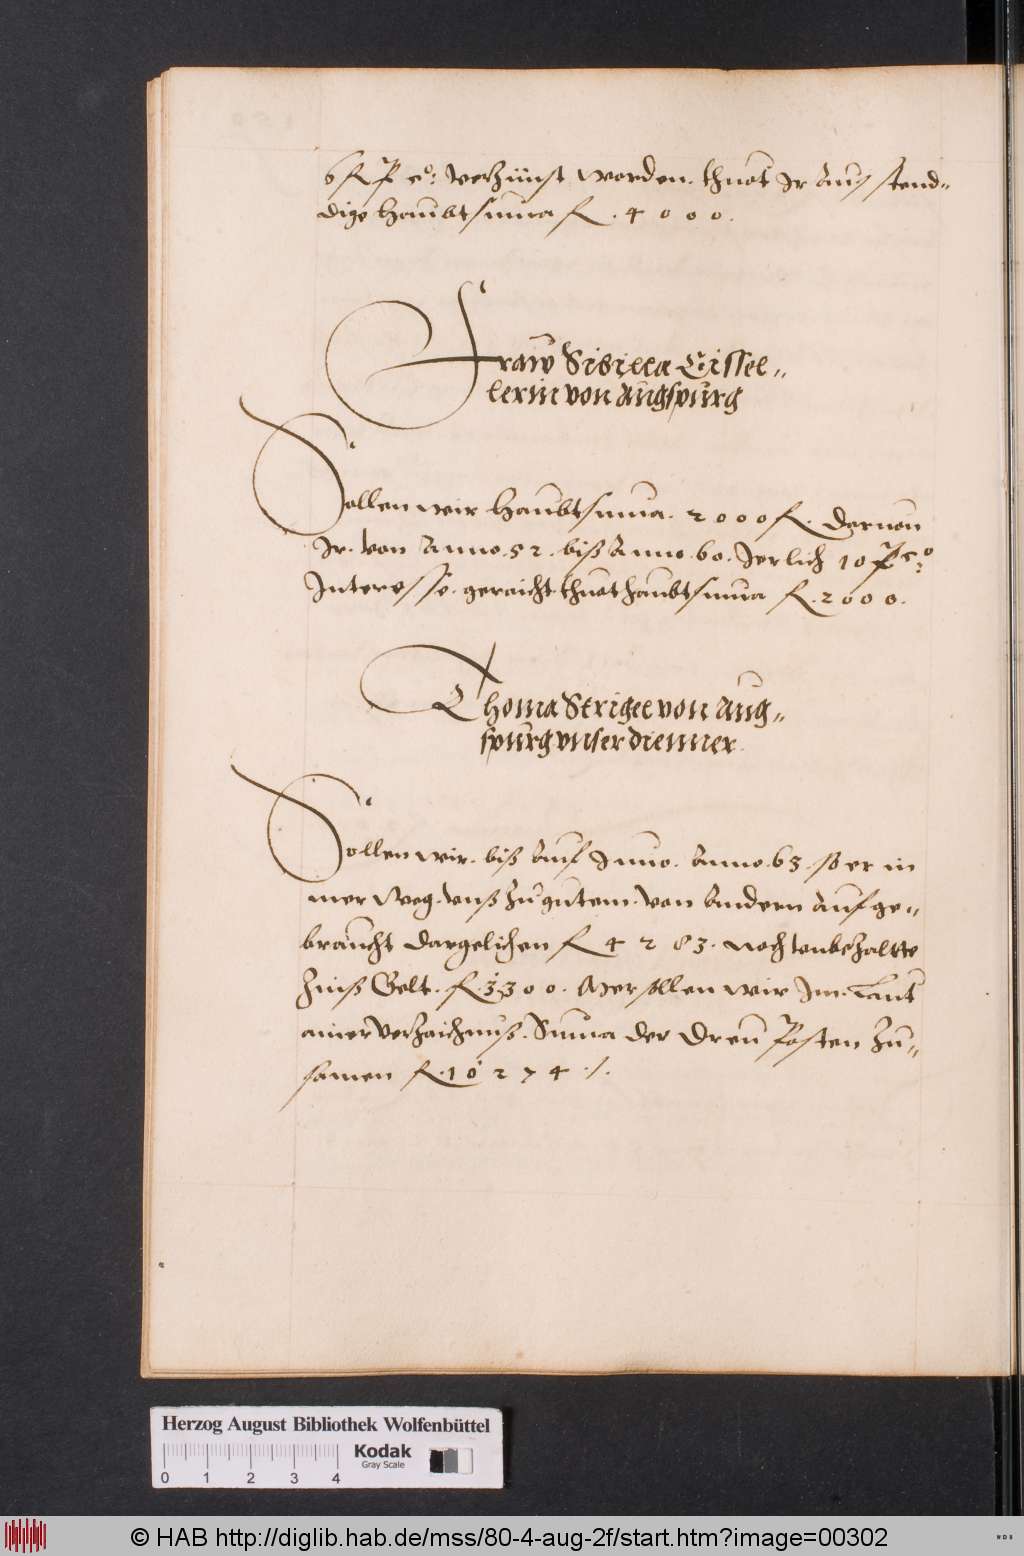 6 fl p co: verzinst worden. thuot Ir Aus stend=
dige haubtsuma fl. 4000.
Fraw Sibilla Eissel=
lerin von Augspurg
Sollen wir haubtsuma. 2000 fl. daruon
Ir. von Anno. 52. biß Anno. 60. Jerlich 10 p co:
Interesse. geraicht thuet haubtsuma fl. 2000.
Thoma Strigel von Aug=
spurg vnser diennner.
Sollen wir. biß Auf Juno. Anno. 63. so er in
mer weg. vnß zu gutem. von Andern auf ge=
braucht dargelichen fl 4283. noch vnbezaltte
Zinß Gelt. fl. 3300. Mer sollen wir Im. Laut
ainer verzaichnuß. Suma der dreu Posten zu=
samen fl. 10274 ./.
Herzog August Bibliothek Wolfenbüttel
Kodak
Gray Scale
0 1 2 3 4
© HAB http://diglib.hab.de/mss/80-4-aug-2f/start.htm?image=00302